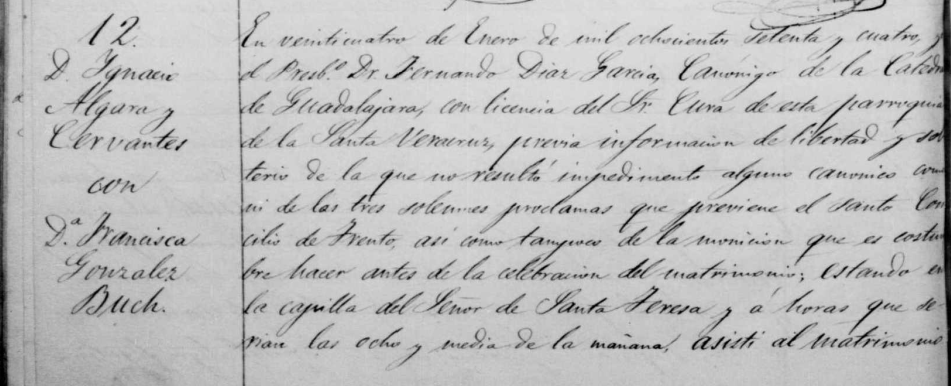 12.
D. Ignacio
Algara y
Cervantes
con
D.ª Francisca
Gonzalez
Buch.
En veinticuatro de Enero de mil ochocientos setenta y cuatro, y
el Presb.º Dr. Fernando Diaz Garcia, Canónigo de la Catedr
de Guadalajara, con licencia del Sr. Cura de esta parroquia
de la Santa Veracruz, previa informacion de libertad y sol
terio de la que no resultó impedimento alguno canonico como
ni de las tres solemnes proclamas que previene el santo Con
cilio de Trento, asi como tampoco de la monicion que es costum
bre hacer antes de la celebracion del matrimonio; estando en
la capilla del Señor de Santa Teresa y á horas que se
rian las ocho y media de la mañana, asisti al matrimonio